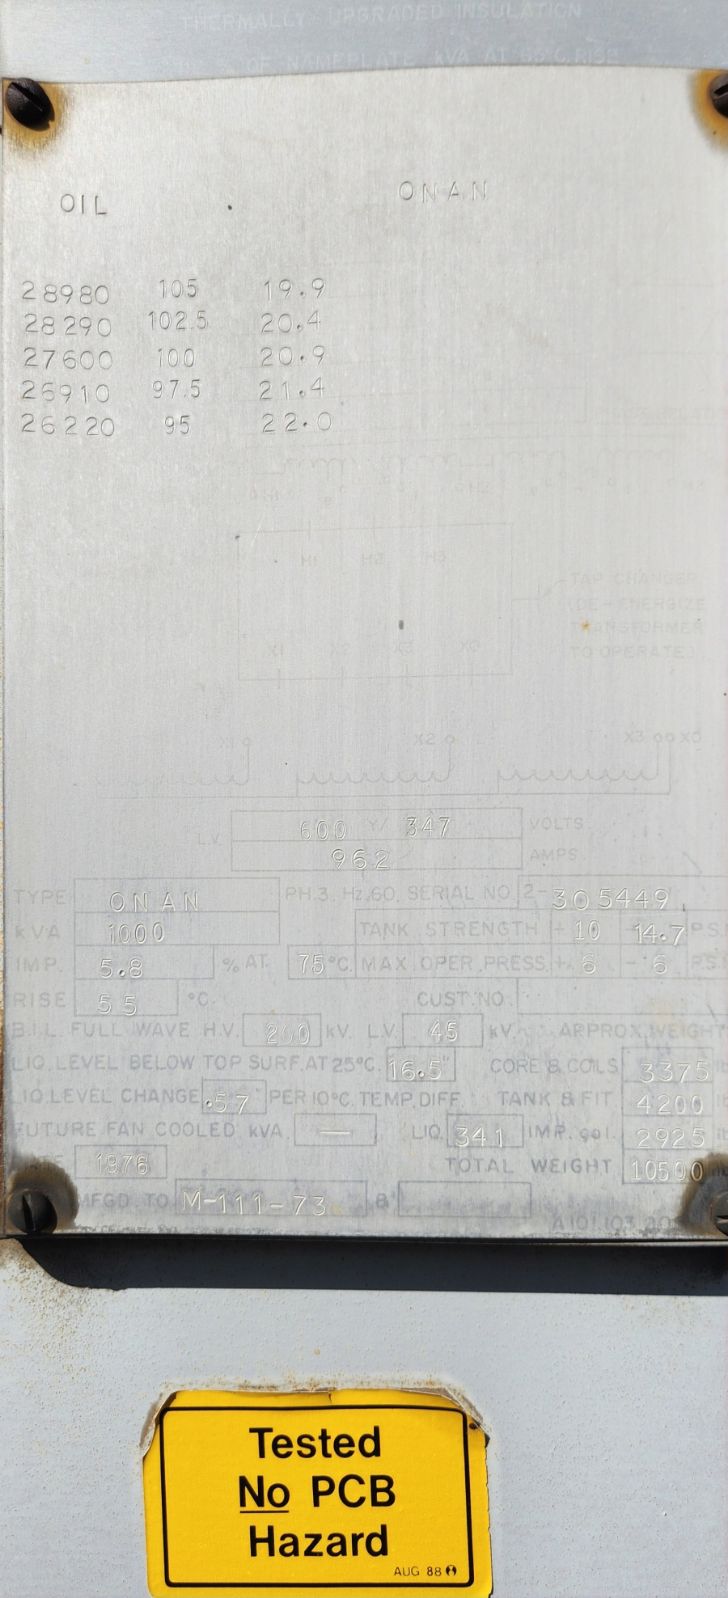 THERMALLY UPGRADED INSULATION
OF NAMEPLATE kVA AT 65°C. RISE
OIL ONAN
28980 105 19.9
28290 102.5 20.4
27600 100 20.9
26910 97.5 21.4
26220 95 22.0
H1 H2 H3
TAP CHANGER
(DE-ENERGIZE
TRANSFORMER
TO OPERATE)
X1 X2 X3 X0
X1 X2 X3 X0
L.V. 600 Y/ 347 VOLTS
962 AMPS
TYPE ONAN PH.3 Hz.60 SERIAL NO. 2-305449
kVA 1000 TANK STRENGTH + 10 - 14.7 P.S.I
IMP. 5.8 % AT 75°C. MAX. OPER. PRESS. + 6 - 6 P.S.I
RISE 55 °C. CUST. NO.
B.I.L. FULL WAVE H.V. 200 kV. L.V. 45 kV. APPROX. WEIGHT
LIQ. LEVEL BELOW TOP SURF. AT 25°C. 16.5" CORE & COILS 3375 lb
LIQ. LEVEL CHANGE .57 PER 10°C. TEMP. DIFF. TANK & FIT. 4200 lb
FUTURE FAN COOLED kVA — LIQ. 341 IMP. gal. 2925 lb
DATE 1976 TOTAL WEIGHT 10500 lb
MFGD TO M-111-73 8
Tested
No PCB
Hazard
AUG 88